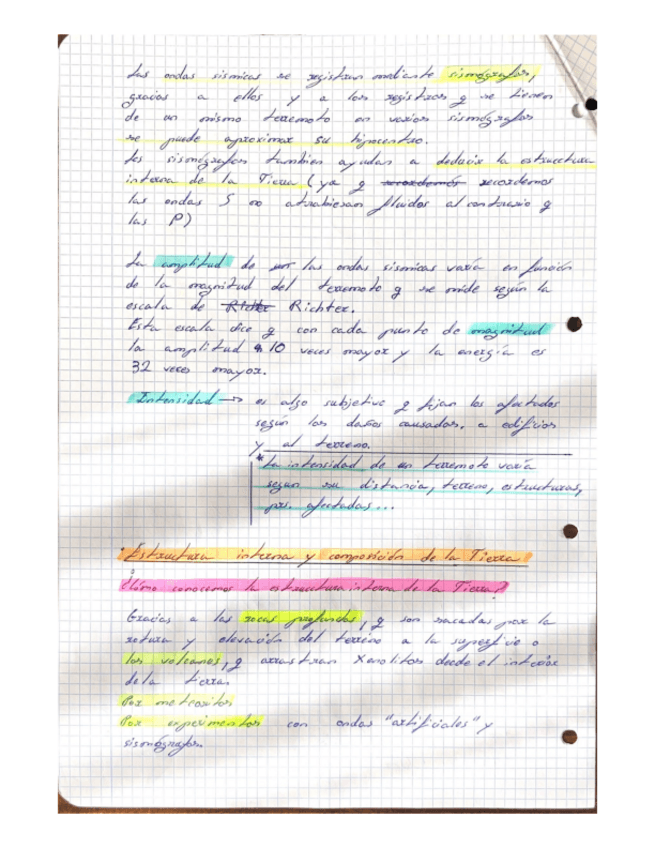 Las ondas sismicas se registran mediante sismógrafos,
gracias a ellos y a los registros q se tienen
de un mismo terremoto en varios sismógrafos
se puede aproximar su hipocentro.
Los sismógrafos tambien ayudan a deducir la estructura
interna de la Tierra (ya q recordemos recordemos
las ondas S no atrabiesan fluidos al contrario q
las P)
La amplitud de las ondas sismicas varía en función
de la magnitud del terremoto y se mide según la
escala de Richter Richter.
Esta escala dice q con cada punto de magnitud
la amplitud 10 veces mayor y la energía es
32 veces mayor.
Intensidad → es algo subjetivo q fijan los afectados
según los daños causados. a edificios
y al terreno.
* La intensidad de un terremoto varía
segun su distancia, terreno, estructuras,
prs. afectadas...
· Estructura interna y composición de la Tierra
¿Cómo conocemos la estructura interna de la Tierra?
Gracias a las rocas profundas, q son sacadas por la
rotura y elevación del terreno a la superficie o
los volcanes, q arrastran Xenolitos desde el interior
de la tierra.
Por meteoritos
Por experimentos con ondas "artificiales" y
sismógrafos.